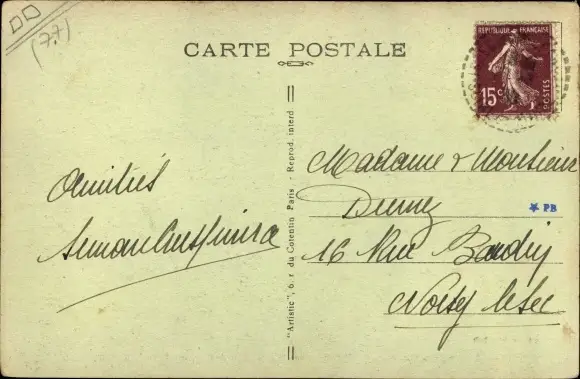 DD
(77)
CARTE POSTALE
RÉPUBLIQUE FRANÇAISE
15c
POSTES
Amitiés
"Artistic", 6, r. du Cotentin Paris - Reprod. interd.
Madame & Monsieur
16 Rue
Noisy le Sec
PB